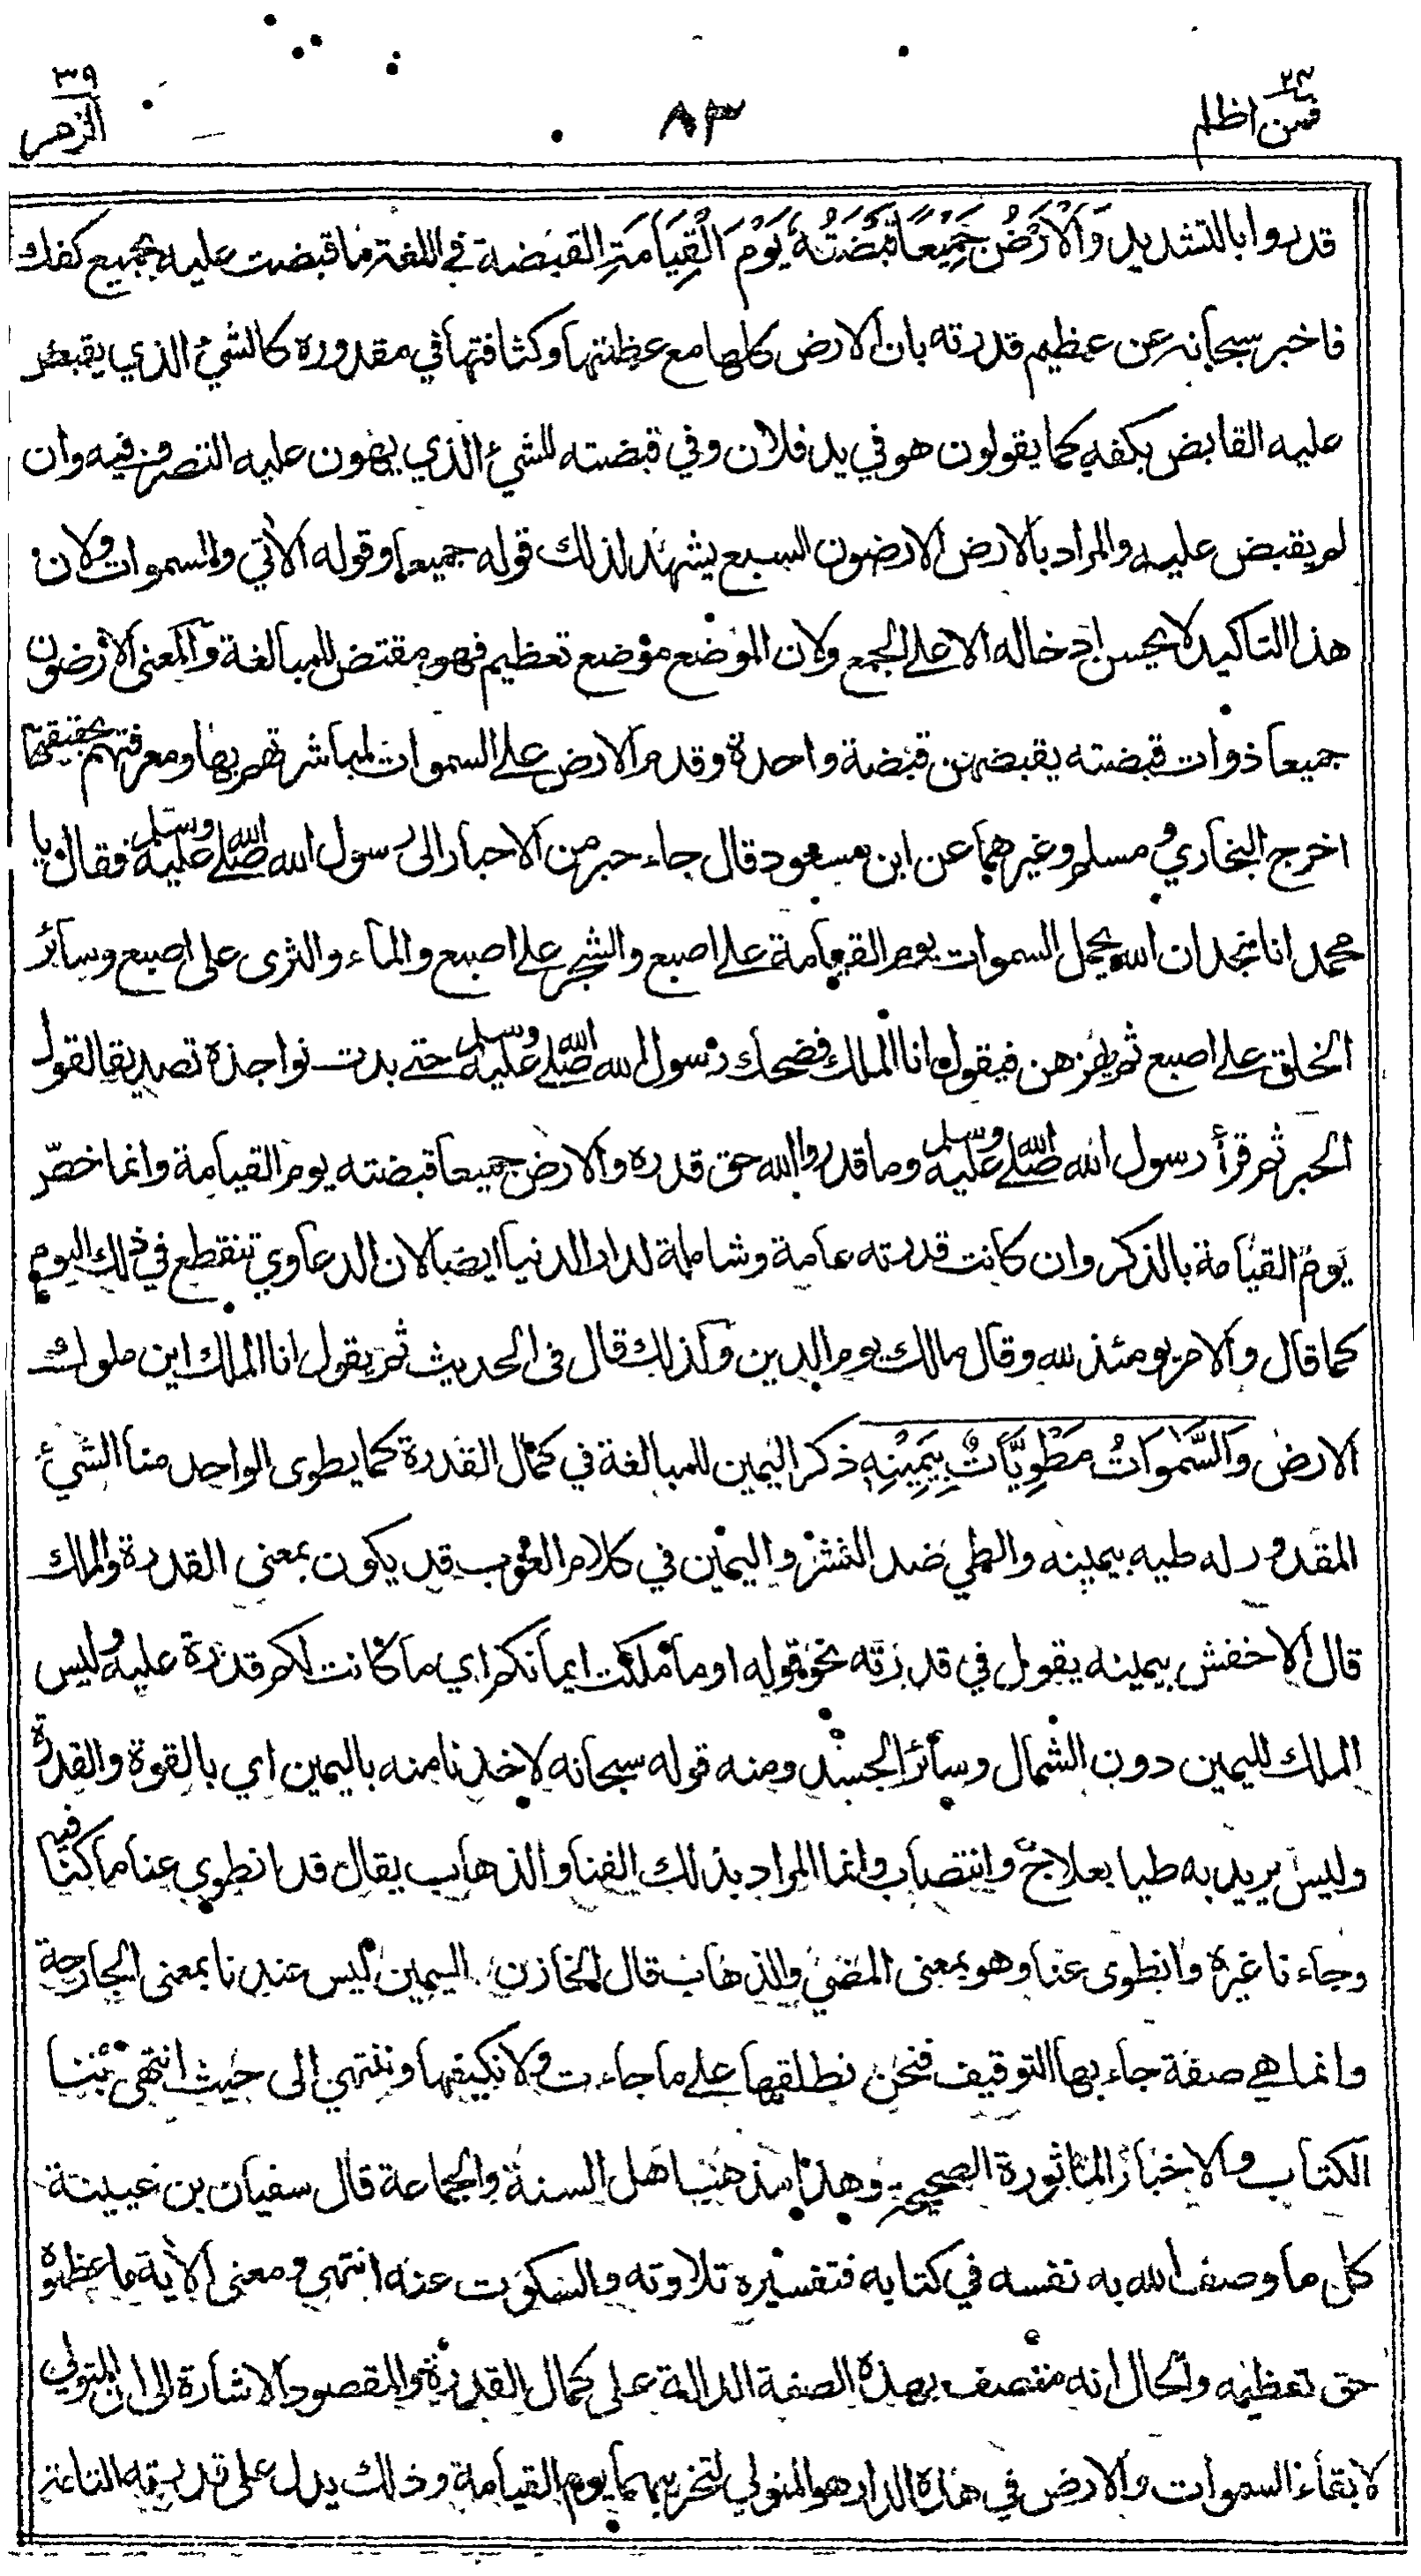 ٢٣ فمن اظلم
٨٣
٣٩ الزمر
قدروا بالتشديد وَالْأَرْضُ جَمِيعًا قَبْضَتُهُ يَوْمَ الْقِيَامَةِ القبضة في اللغة ما قبضت عليه بجميع كفك
فاخبر سبحانه عن عظيم قدرته بان الارض كلها مع عظمتها وكثافتها في مقدوره كالشيء الذي يقبض
عليه القابض بكفه كما يقولون هو في يد فلان وفي قبضته للشيء الذي يهون عليه التصرف فيه وان
لم يقبض عليه والمراد بالارض الارضون السبع يشهد لذلك قوله جميعا وقوله الآتي والسموات ولان
هذا التاكيد لا يحسن ادخاله الا على الجمع ولان الموضع موضع تعظيم فهو مقتض للمبالغة والمعنى الارضون
جميعا ذوات قبضته يقبضهن قبضة واحدة وقدم الارض على السموات لمباشرتهم بها ومعرفتهم بحقيقتها
اخرج البخاري ومسلم وغيرهما عن ابن مسعود قال جاء حبر من الاحبار الى رسول الله صلى الله عليه وسلم فقال يا
محمد انا نجد ان الله يحمل السموات يوم القيامة على اصبع والشجر على اصبع والماء والثرى على اصبع وسائر
الخلق على اصبع ثم يهزهن فيقول انا الملك فضحك رسول الله صلى الله عليه وسلم حتى بدت نواجذه تصديقا لقول
الحبر ثم قرأ رسول الله صلى الله عليه وسلم وما قدروا الله حق قدره والارض جميعا قبضته يوم القيامة وانما خصّ
يوم القيامة بالذكر وان كانت قدرته عامة وشاملة لدار الدنيا ايضا لان الدعاوي تنقطع في ذلك اليوم
كما قال والامر يومئذ لله وقال مالك يوم الدين وكذلك قال في الحديث ثم يقول انا الملك اين ملوك
الارض وَالسَّمٰوَاتُ مَطْوِيَّاتٌ بِيَمِينِهِ ذكر اليمين للمبالغة في كمال القدرة كما يطوى الواحد منا الشيء
المقدور له طيه بيمينه والطي ضد النشر واليمين في كلام العرب قد يكون بمعنى القدرة والملك
قال الاخفش بيمينه يقول في قدرته نحو قوله او ما ملكت ايمانكم اي ما كانت لكم قدرة عليه وليس
الملك لليمين دون الشمال وسائر الجسد ومنه قوله سبحانه لاخذنا منه باليمين اي بالقوة والقدرة
وليس يريد به طيا بعلاج وانتصاب وانما المراد بذلك الفنا والذهاب يقال قد انطوى عنا ما كنا فيه
وجاءنا غيره وانطوى عنا وهو بمعنى المضي والذهاب قال الخازن اليمين ليس عندنا بمعنى الجارحة
وانما هي صفة جاء بها التوقيف فنحن نطلقها على ما جاءت ولا نكيفها وننتهي الى حيث انتهى بنا
الكتاب والاخبار الماثورة الصحيحة وهذا مذهب اهل السنة والجماعة قال سفيان بن عيينة
كل ما وصف الله به نفسه في كتابه فتفسيره تلاوته والسكوت عنه انتهى ومعنى الآية ما عظموه
حق تعظيمه والحال انه متصف بهذه الصفة الدالة على كمال القدرة والمقصود الاشارة الى ان المتولي
لابقاء السموات والارض في هذه الدار هو المتولي لتخريبهما يوم القيامة وذلك يدل على قدرته التامة